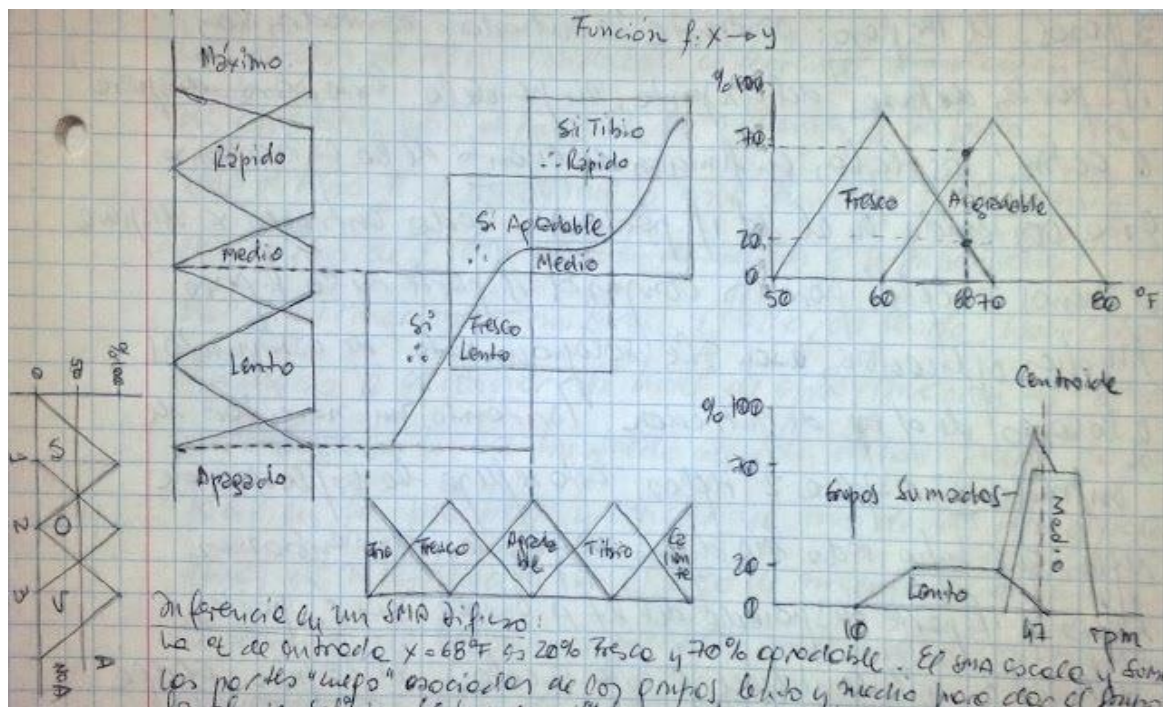 Función f: X → y
Máximo
Rápido
Medio
Lento
Apagado
Si Tibio
∴ Rápido
Si Agradable
∴ Medio
Si Fresco
∴ Lento
Frío Fresco Agradable Tibio Caliente
% 100
70
20
0
Fresco Agradable
50 60 68 70 80 °F
Centroide
% 100
70
20
0
Grupos Sumados
Medio
Lento
10 47 rpm
% 100
50
0
1 2 3
A
Inferencia en un SMA difuso:
La de entrada x=68°F es 20% Fresco y 70% agradable. El SMA escala y suma
los partes "luego" asociados de los grupos lento y medio para dar el